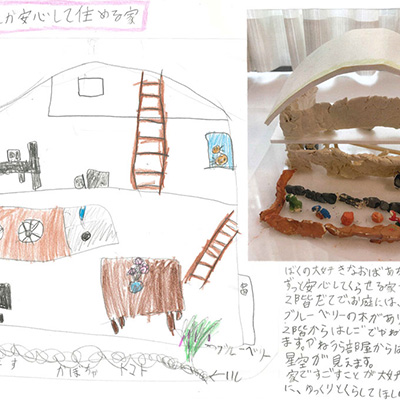 が安心して住める家
ブルーベリー
かぼちゃ
トマト
ぼくの大好きなおばあち
ずっと安心してくらせる家
2階だてでお庭には、
ブルーベリーの木があり
2階からはしごでやね
ますやねうら部屋からは
星空が見えます。
家ですごすことが大好
に、ゆっくりとくらしてほし